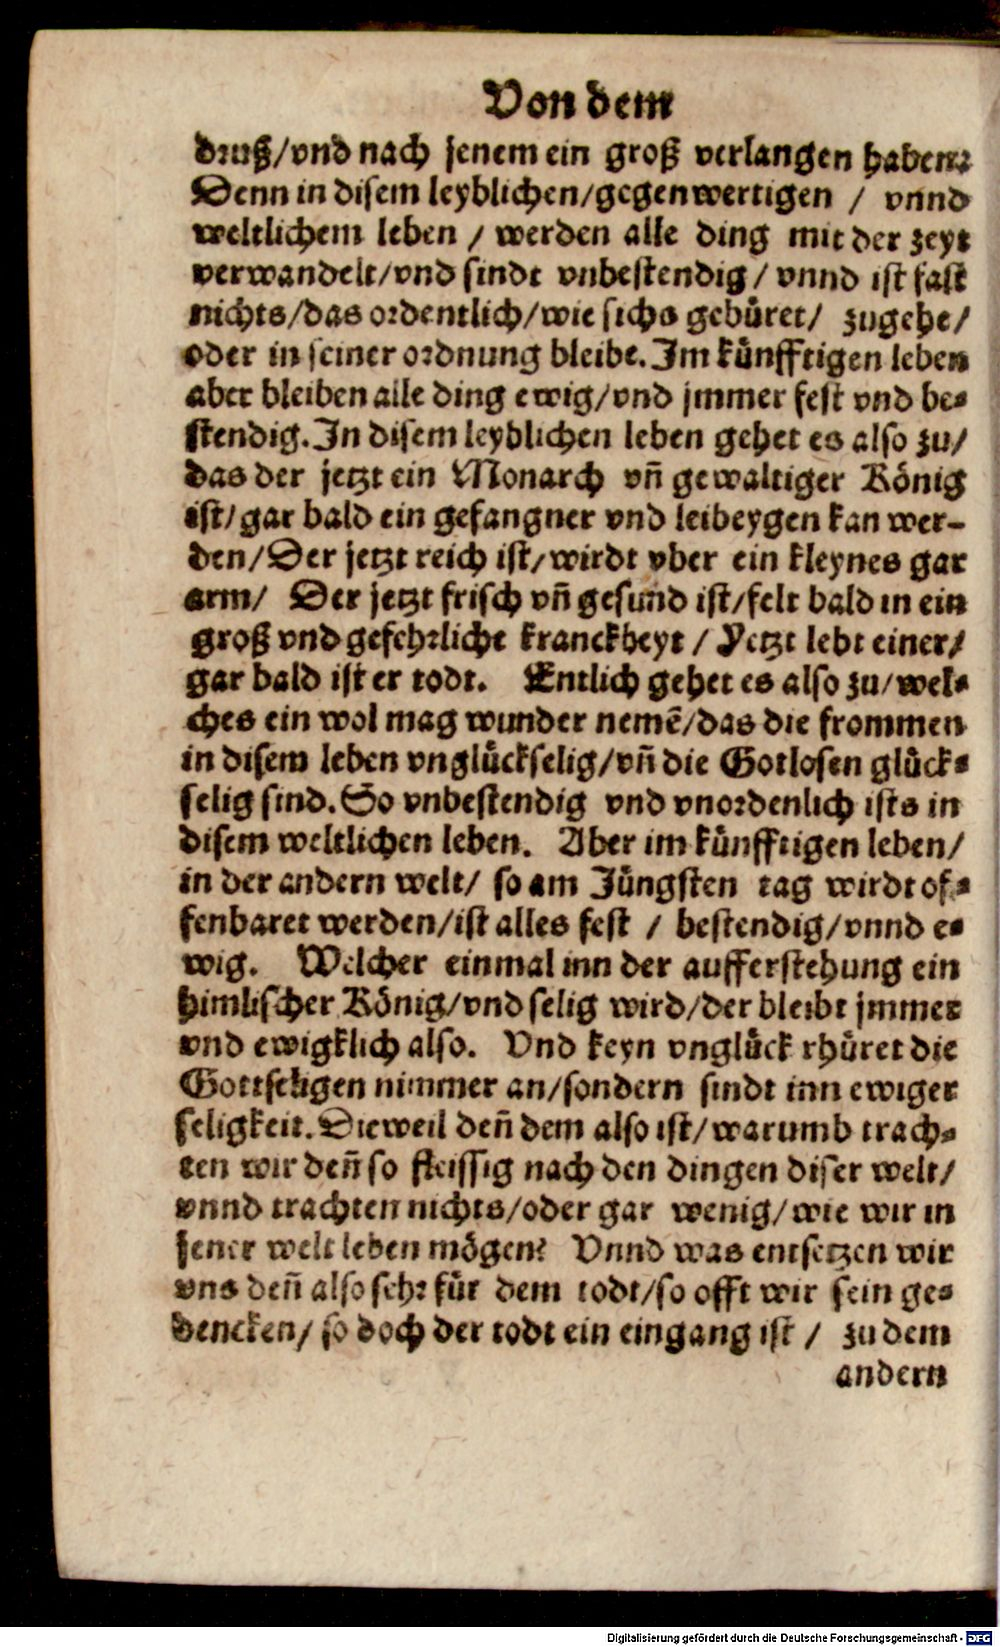 Von dem
druß/vnd nach jenem ein groß verlangen haben?
Denn in disem leyblichen/gegenwertigen / vnnd
weltlichem leben / werden alle ding mit der zeyt
verwandelt/vnd sindt vnbestendig/ vnnd ist fast
nichts/das ordentlich/wie sichs gebüret/ zugehe/
oder in seiner ordnung bleibe. Im künfftigen leben
aber bleiben alle ding ewig/vnd jmmer fest vnd be⸗
stendig. In disem leyblichen leben gehet es also zu/
das der jetzt ein Monarch vñ gewaltiger König
ist/ gar bald ein gefangner vnd leibeygen kan wer-
den/Der jetzt reich ist/wirdt vber ein kleynes gar
arm/ Der jetzt frisch vñ gesund ist/felt bald in ein
groß vnd gefehrliche kranckheyt / Yetzt lebt einer/
gar bald ist er todt. Entlich gehet es also zu/wel⸗
ches ein wol mag wunder nemẽ/das die frommen
in disem leben vnglückselig/vñ die Gotlosen glück⸗
selig sind. So vnbestendig vnd vnordenlich ists in
disem weltlichen leben. Aber im künfftigen leben/
in der andern welt/ so am Jüngsten tag wirdt of⸗
fenbaret werden/ist alles fest / bestendig/vnnd e⸗
wig. Welcher einmal inn der aufferstehung ein
himlischer König/vnd selig wird/der bleibt jmmer
vnd ewigklich also. Vnd keyn vnglück rhüret die
Gottseligen nimmer an/sondern sindt inn ewiger
seligkeit. Dieweil deñ dem also ist/warumb trach⸗
ten wir deñ so fleissig nach den dingen diser welt/
vnnd trachten nichts/oder gar wenig/wie wir in
jener welt leben mögen? Vnnd was entsetzen wir
vns deñ also sehr für dem todt/so offt wir sein ge⸗
dencken/ so doch der todt ein eingang ist / zu dem
andern
Digitalisierung gefördert durch die Deutsche Forschungsgemeinschaft - DFG